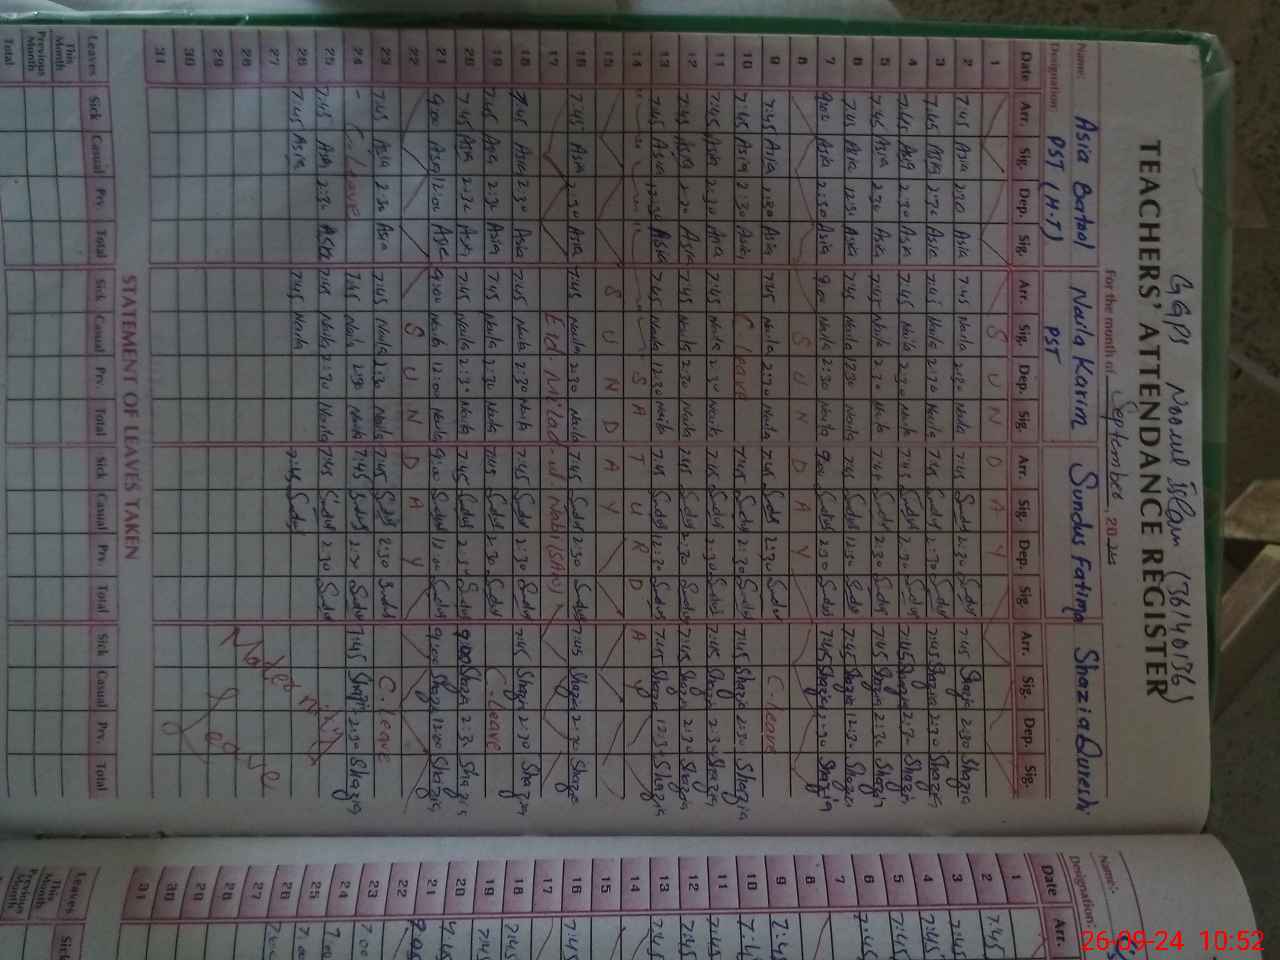 GGPS Noorul Islam (36140136)
TEACHERS' ATTENDANCE REGISTER
For the month of September, 20
Name: Asia Batool Naila Karim Sundus Fatima Shazia Qureshi
Designation: PST (H.T) PST
Date Arr. Sig. Dep. Sig. Arr. Sig. Dep. Sig. Arr. Sig. Dep. Sig. Arr. Sig. Dep. Sig.
1 S U N D A Y
2 7:45 Asia 2:30 Asia 7:45 Naila 2:30 Naila 7:45 Sundus 2:30 Sundus 7:45 Shazia 2:30 Shazia
3 7:45 Asia 2:30 Asia 7:45 Naila 2:30 Naila 7:45 Sundus 2:30 Sundus 7:45 Shazia 2:30 Shazia
4 7:45 Asia 2:30 Asia 7:45 Naila 2:30 Naila 7:45 Sundus 2:30 Sundus 7:45 Shazia 2:30 Shazia
5 7:45 Asia 2:30 Asia 7:45 Naila 2:30 Naila 7:45 Sundus 2:30 Sundus 7:45 Shazia 2:30 Shazia
6 7:45 Asia 12:30 Asia 7:45 Naila 12:30 Naila 7:45 Sundus 12:30 Sundus 7:45 Shazia 12:30 Shazia
7 9:00 Asia 2:30 Asia 9:00 Naila 2:30 Naila 9:00 Sundus 2:30 Sundus 7:45 Shazia 2:30 Shazia
8 S U N D A Y
9 7:45 Asia 1:30 Asia 7:45 Naila 2:30 Naila 7:45 Sundus 2:30 Sundus C-leave
10 7:45 Asia 2:30 Asia C leave 7:45 Sundus 2:30 Sundus 7:45 Shazia 2:30 Shazia
11 7:45 Asia 2:30 Asia 7:45 Naila 2:30 Naila 7:45 Sundus 2:30 Sundus 7:45 Shazia 2:30 Shazia
12 7:45 Asia 2:30 Asia 7:45 Naila 2:30 Naila 7:45 Sundus 2:30 Sundus 7:45 Shazia 2:30 Shazia
13 7:45 Asia 12:30 Asia 7:45 Naila 12:30 Naila 7:45 Sundus 12:30 Sundus 7:45 Shazia 12:30 Shazia
14 S A T U R D A Y
15 S U N D A Y
16 7:45 Asia 2:30 Asia 7:45 Naila 2:30 Naila 7:45 Sundus 2:30 Sundus 7:45 Shazia 2:30 Shazia
17 Eid-Milad-u-Nabi (SAW)
18 7:45 Asia 2:30 Asia 7:45 Naila 2:30 Naila 7:45 Sundus 2:30 Sundus 7:45 Shazia 2:30 Shazia
19 7:45 Asia 2:30 Asia 7:45 Naila 2:30 Naila 7:45 Sundus 2:30 Sundus C-leave
20 7:45 Asia 2:30 Asia 7:45 Naila 2:30 Naila 7:45 Sundus 2:30 Sundus 9:00 Shazia 2:30 Shazia
21 9:00 Asia 12:00 Asia 9:00 Naila 12:00 Naila 9:00 Sundus 12:00 Sundus 9:00 Shazia 12:00 Shazia
22 S U N D A Y
23 7:45 Asia 2:30 Asia 7:45 Naila 2:30 Naila 7:45 Sundus 2:30 Sundus C-leave
24 - C-leave 7:45 Naila 2:30 Naila 7:45 Sundus 2:30 Sundus 7:45 Shazia 2:30 Shazia
25 7:45 Asia 2:30 Asia 7:45 Naila 2:30 Naila 7:45 Sundus 2:30 Sundus
26 7:45 Asia 7:45 Naila 7:45 Sundus
27
28
29
30
31
Maternity Leave
STATEMENT OF LEAVES TAKEN
Leaves Sick Casual Prv. Total Sick Casual Prv. Total Sick Casual Prv. Total Sick Casual Prv. Total
This Month
Previous Month
Total
Name:
Designation
Date Arr.
1
2 7:45
3 7:45
4 7:45
5 7:45
6 7:45
7
8
9 7:45
10 7:45
11 7:45
12 7:45
13 7:45
14
15
16 7:45
17
18 7:45
19 7:45
20 7:45
21 9:00
22
23 7:00
24 7:00
25 7:00
26 7:00
27
28
29
30
31
Leaves Sick
This Month
Previous Month
26-09-24 10:52